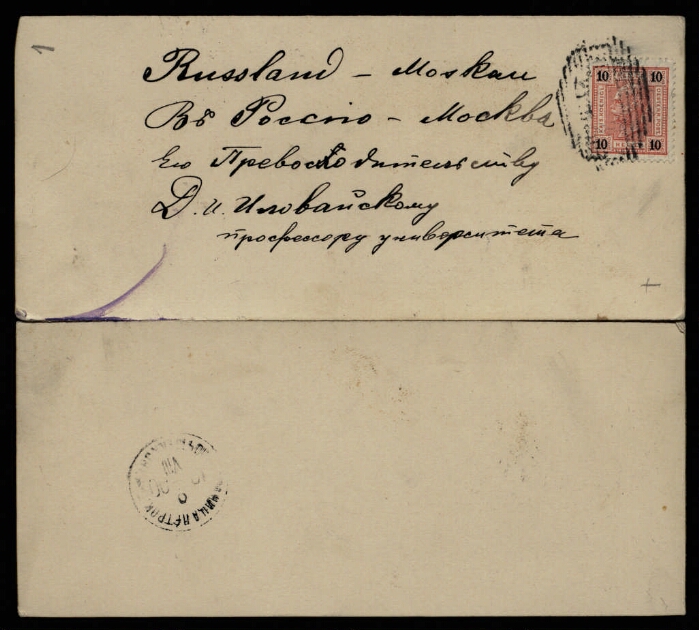 1
Russland – Moskau
Въ Россію – Москва
Его Превосходительству
Д. И. Иловайскому
профессору университета
10 10
10 10
+
VIII